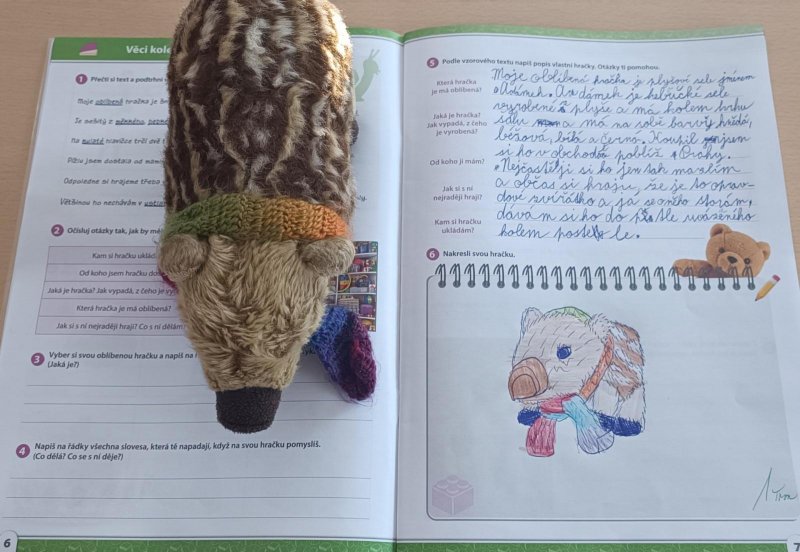 Věci kol
1 Přečti si text a podtrhni
Moje oblíbená hračka je
Je
Na kulaté hlavičce trčí dvě
Půju jsem dostala od mam
Odpoledne si hrajeme třeba
Většinou ho nechávám v
2 Očísluj otázky tak, jak by mě
Kam si hračku uklá
Od koho jsem hračku dos
Jaká je hračka? Jak vypadá, z čeho je vy
Která hračka je má oblíbená?
Jak si s ní nejraději hraji? Co s ní dělám
3 Vyber si svou oblíbenou hračku a napiš na
(Jaká je?)
4 Napiš na řádky všechna slovesa, která tě napadají, když na svou hračku pomyslíš.
(Co dělá? Co se s ní děje?)
6
5 Podle vzorového textu napiš popis vlastní hračky. Otázky ti pomohou.
Která hračka
je má oblíbená?
Jaká je hračka?
Jak vypadá, z čeho
je vyrobená?
Od koho ji mám?
Jak si s ní
nejraději hraji?
Kam si hračku
ukládám?
Moje oblíbená hračka je plyšové sele jménem
Adámek. Adámek je hebčické sele
vyrobené z plyše a má kolem krku
šálu a má na sobě barvy hnědá,
béžová, bílá a černá. Koupil jsem
si ho v obchodě poblíž Prahy.
Nejčastěji si ho jen tak mazlím
a občas si hraju, že je to oprav-
dové zvířátko a já se o něj starám,
dávám si ho do
kolem postele.
6 Nakresli svou hračku.
1
7